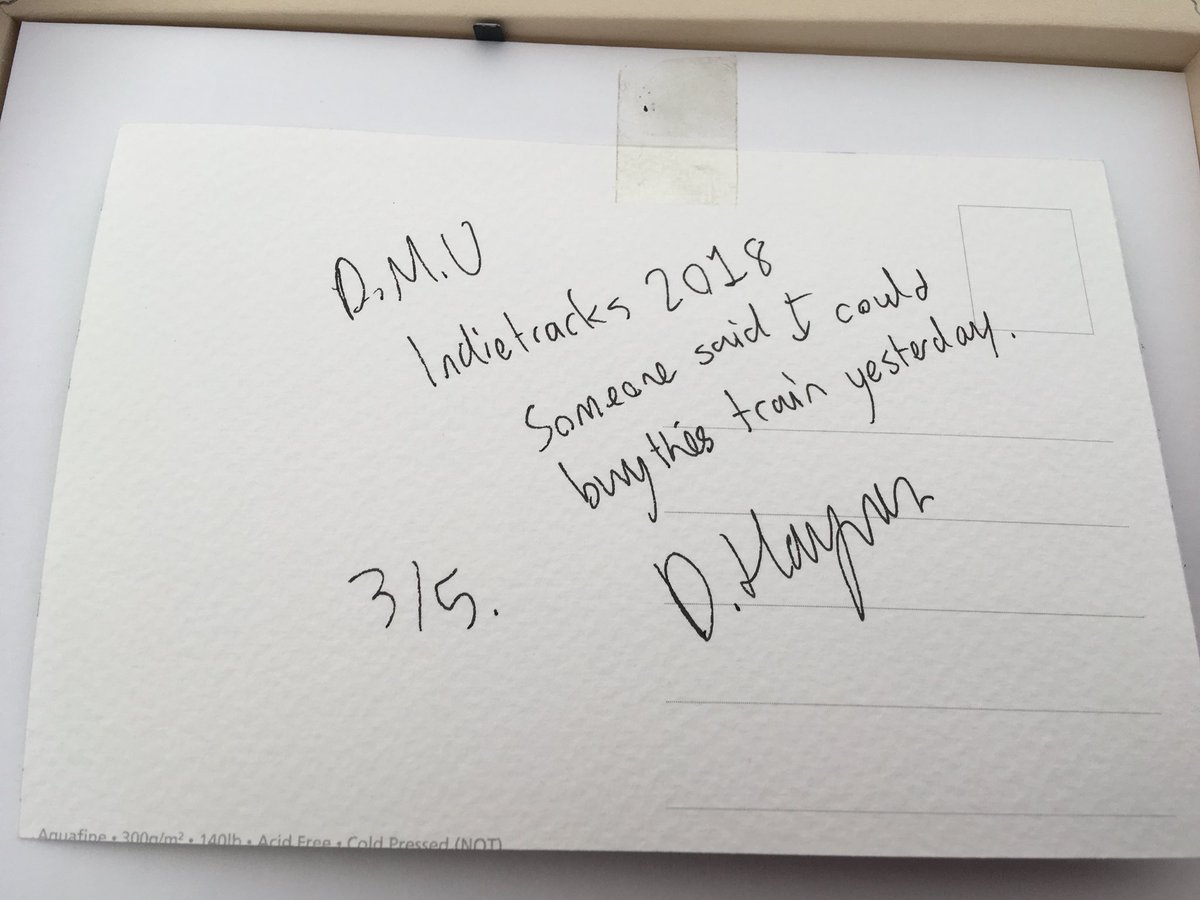 D.M.U
Indietracks 2018
Someone said I could
buy this train yesterday.
3/5.
D.
Aquafine • 300g/m² • 140lb • Acid Free • Cold Pressed (NOT)